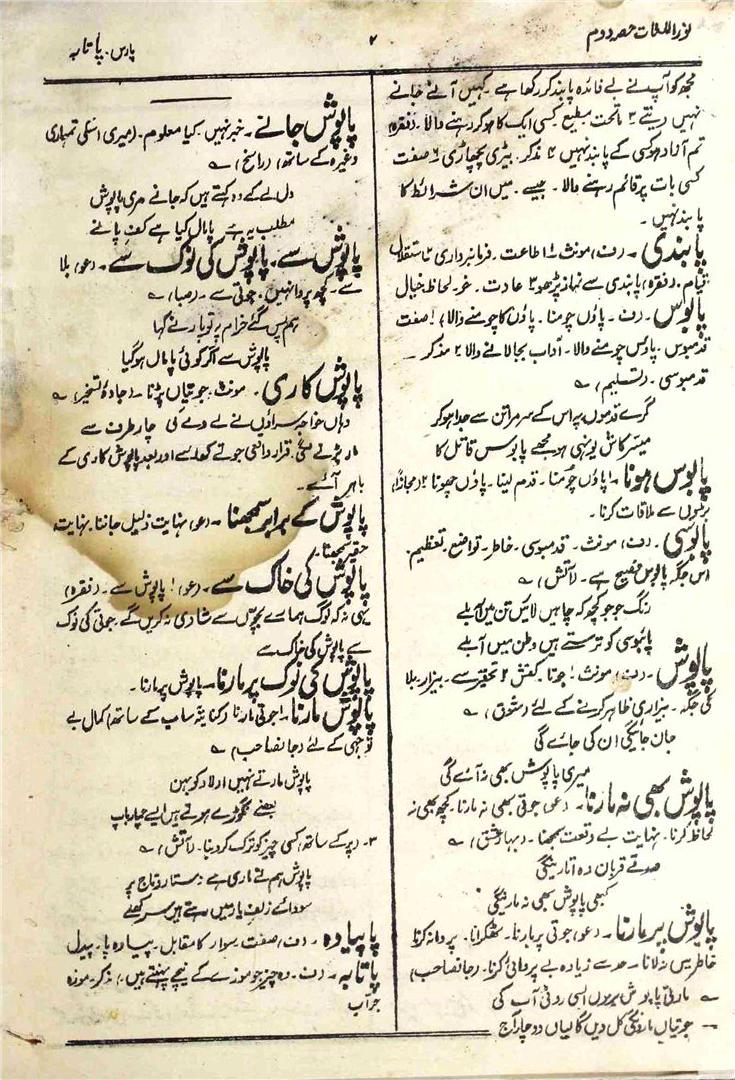 نوراللغات حصہ دوم
۲
پارس۔ پاتابہ
مجھ کو آپ نے بے فائدہ پابند کر رکھا ہے۔ کہیں آنے جانے
نہیں دیتے ۳ ماتحت مطیع۔ کسی ایک کا ہو کر رہنے والا۔ (فقرہ)
تم آزاد ہو کسی کے پابند نہیں ۴ مذکر۔ بیڑی پچھاڑی ۶ صفت
کسی بات پر قائم رہنے والا۔ جیسے۔ میں ان شرائط کا
پابند نہیں۔
پابندی۔ (ف) مونث۔ ۱ اطاعت۔ فرمانبرداری ۲ استقلال
قیام۔ (فقرہ) پابندی سے نماز پڑھو ۳ عادت۔ غور لحاظ خیال
پابوس (ف۔ پاؤں چومنا۔ پاؤں کا چومنے والا) ۱ صفت
قدمبوس۔ پاؤں چومنے والا۔ آداب بجا لانے والا ۲ مذکر۔
قدمبوسی۔ (تسلیم) ؎
گرے قدموں پہ اس کے سر مرا تن سے جدا ہو کر
میسر کاش یونہی ہو مجھے پابوس قاتل کا
پابوس ہونا۔ ۱ پاؤں چومنا۔ قدم لینا۔ پاؤں چھونا ۲ (مجازاً)
بزرگوں سے ملاقات کرنا۔
پابوسی۔ (ف) مونث۔ قدمبوسی۔ خاطر۔ تواضع۔ تعظیم۔
اس جگہ پابوس فصیح ہے۔ (آتش) ؎
رنگ جو جو کچھ کہ چاہیں لائیں تن میں آبلے
پائبوسی کو ترستے ہیں وطن میں آبلے
پاپوش۔ (ف) مونث۔ ۱ جوتا۔ کفش ۲ تحقیر سے۔ بیزار۔ بلا
کی جگہ۔ بیزاری ظاہر کرنے کے لئے (شوق) ؎
جان جائیگی ان کی جائے گی
میری پاپوش بھی نہ آئے گی
پاپوش بھی نہ مارنا۔ (عو) جوتی بھی نہ مارنا۔ کچھ بھی نہ
لحاظ کرنا۔ نہایت بے وقعت سمجھنا۔ (بہار عشق) ؎
صدقے قربان وہ اتاریگی
کبھی پاپوش بھی نہ ماریگی
پاپوش پر مارنا۔ (عو) جوتی پر مارنا۔ ٹھکرانا۔ پروا نہ کرنا
خاطر میں نہ لانا۔ حد سے زیادہ بے پروائی کرنا۔ (جانصاحب)
؎ مارتی پاپوش پر ہوں ایسی روٹی آپ کی
جوتیاں مارونگی کل دیں گالیاں دو چار آج
پاپوش جانے۔ خبر نہیں۔ کیا معلوم۔ (میری اسکی تمہاری
وغیرہ کے ساتھ) (راسخ) ؎
دل لے کے وہ کہتے ہیں کہ جانے مری پاپوش
مطلب یہ ہے پامال کیا ہے کفِ پا نے
پاپوش سے۔ پاپوش کی نوک سے۔ (عو) بلا
سے۔ کچھ پروا نہیں۔ جوتی سے۔ (صبا) ؎
ہم پس گئے خرام پہ تو یار نے کہا
پاپوش سے اگر کوئی پامال ہو گیا
پاپوش کاری۔ مونث۔ جوتیاں پڑنا۔ (جادۂ تسخیر) ؎
وہاں خواجہ سراؤں نے لے دے کی چار طرف سے
مار پڑنے لگی۔ قرار واقعی جوتے کھائے اور بعد پاپوش کاری کے
باہر آئے۔
پاپوش کے برابر سمجھنا۔ (عو) نہایت ذلیل جاننا۔ نہایت
حقیر سمجھنا۔
پاپوش کی خاک سے۔ (عو) ! پاپوش سے۔ (فقرہ)
یہی نہ کہ لوگ ہمارے بچوں سے شادی نہ کریں گے۔ جوتی کی نوک
سے پاپوش کی خاک سے
پاپوش کی نوک پر مارنا۔ پاپوش پر مارنا۔
پاپوش مارنا۔ ۱ جوتی مارنا (کنایۃً سایہ کے ساتھ) کمال بے
توجہی کے لئے (جانصاحب) ؎
پاپوش مارتے نہیں اولاد کو بہن
بعضے نگوڑے ہوتے ہیں ایسے چمار باپ
۳۔ (پر کے ساتھ) کسی چیز کو ترک کر دینا۔ (آتش) ؎
پاپوش ہم نے ماری ہے دستار و تاج پر
سودائے زلفِ یار میں رہتے ہیں سر کھلے
پاپیادہ۔ (ف) صفت۔ سوار کا مقابل۔ پیادہ پا۔ پیدل
پاتابہ۔ (ف۔ وہ چیز جو موزے کے نیچے پہنتے ہیں) مذکر۔ موزہ
جراب